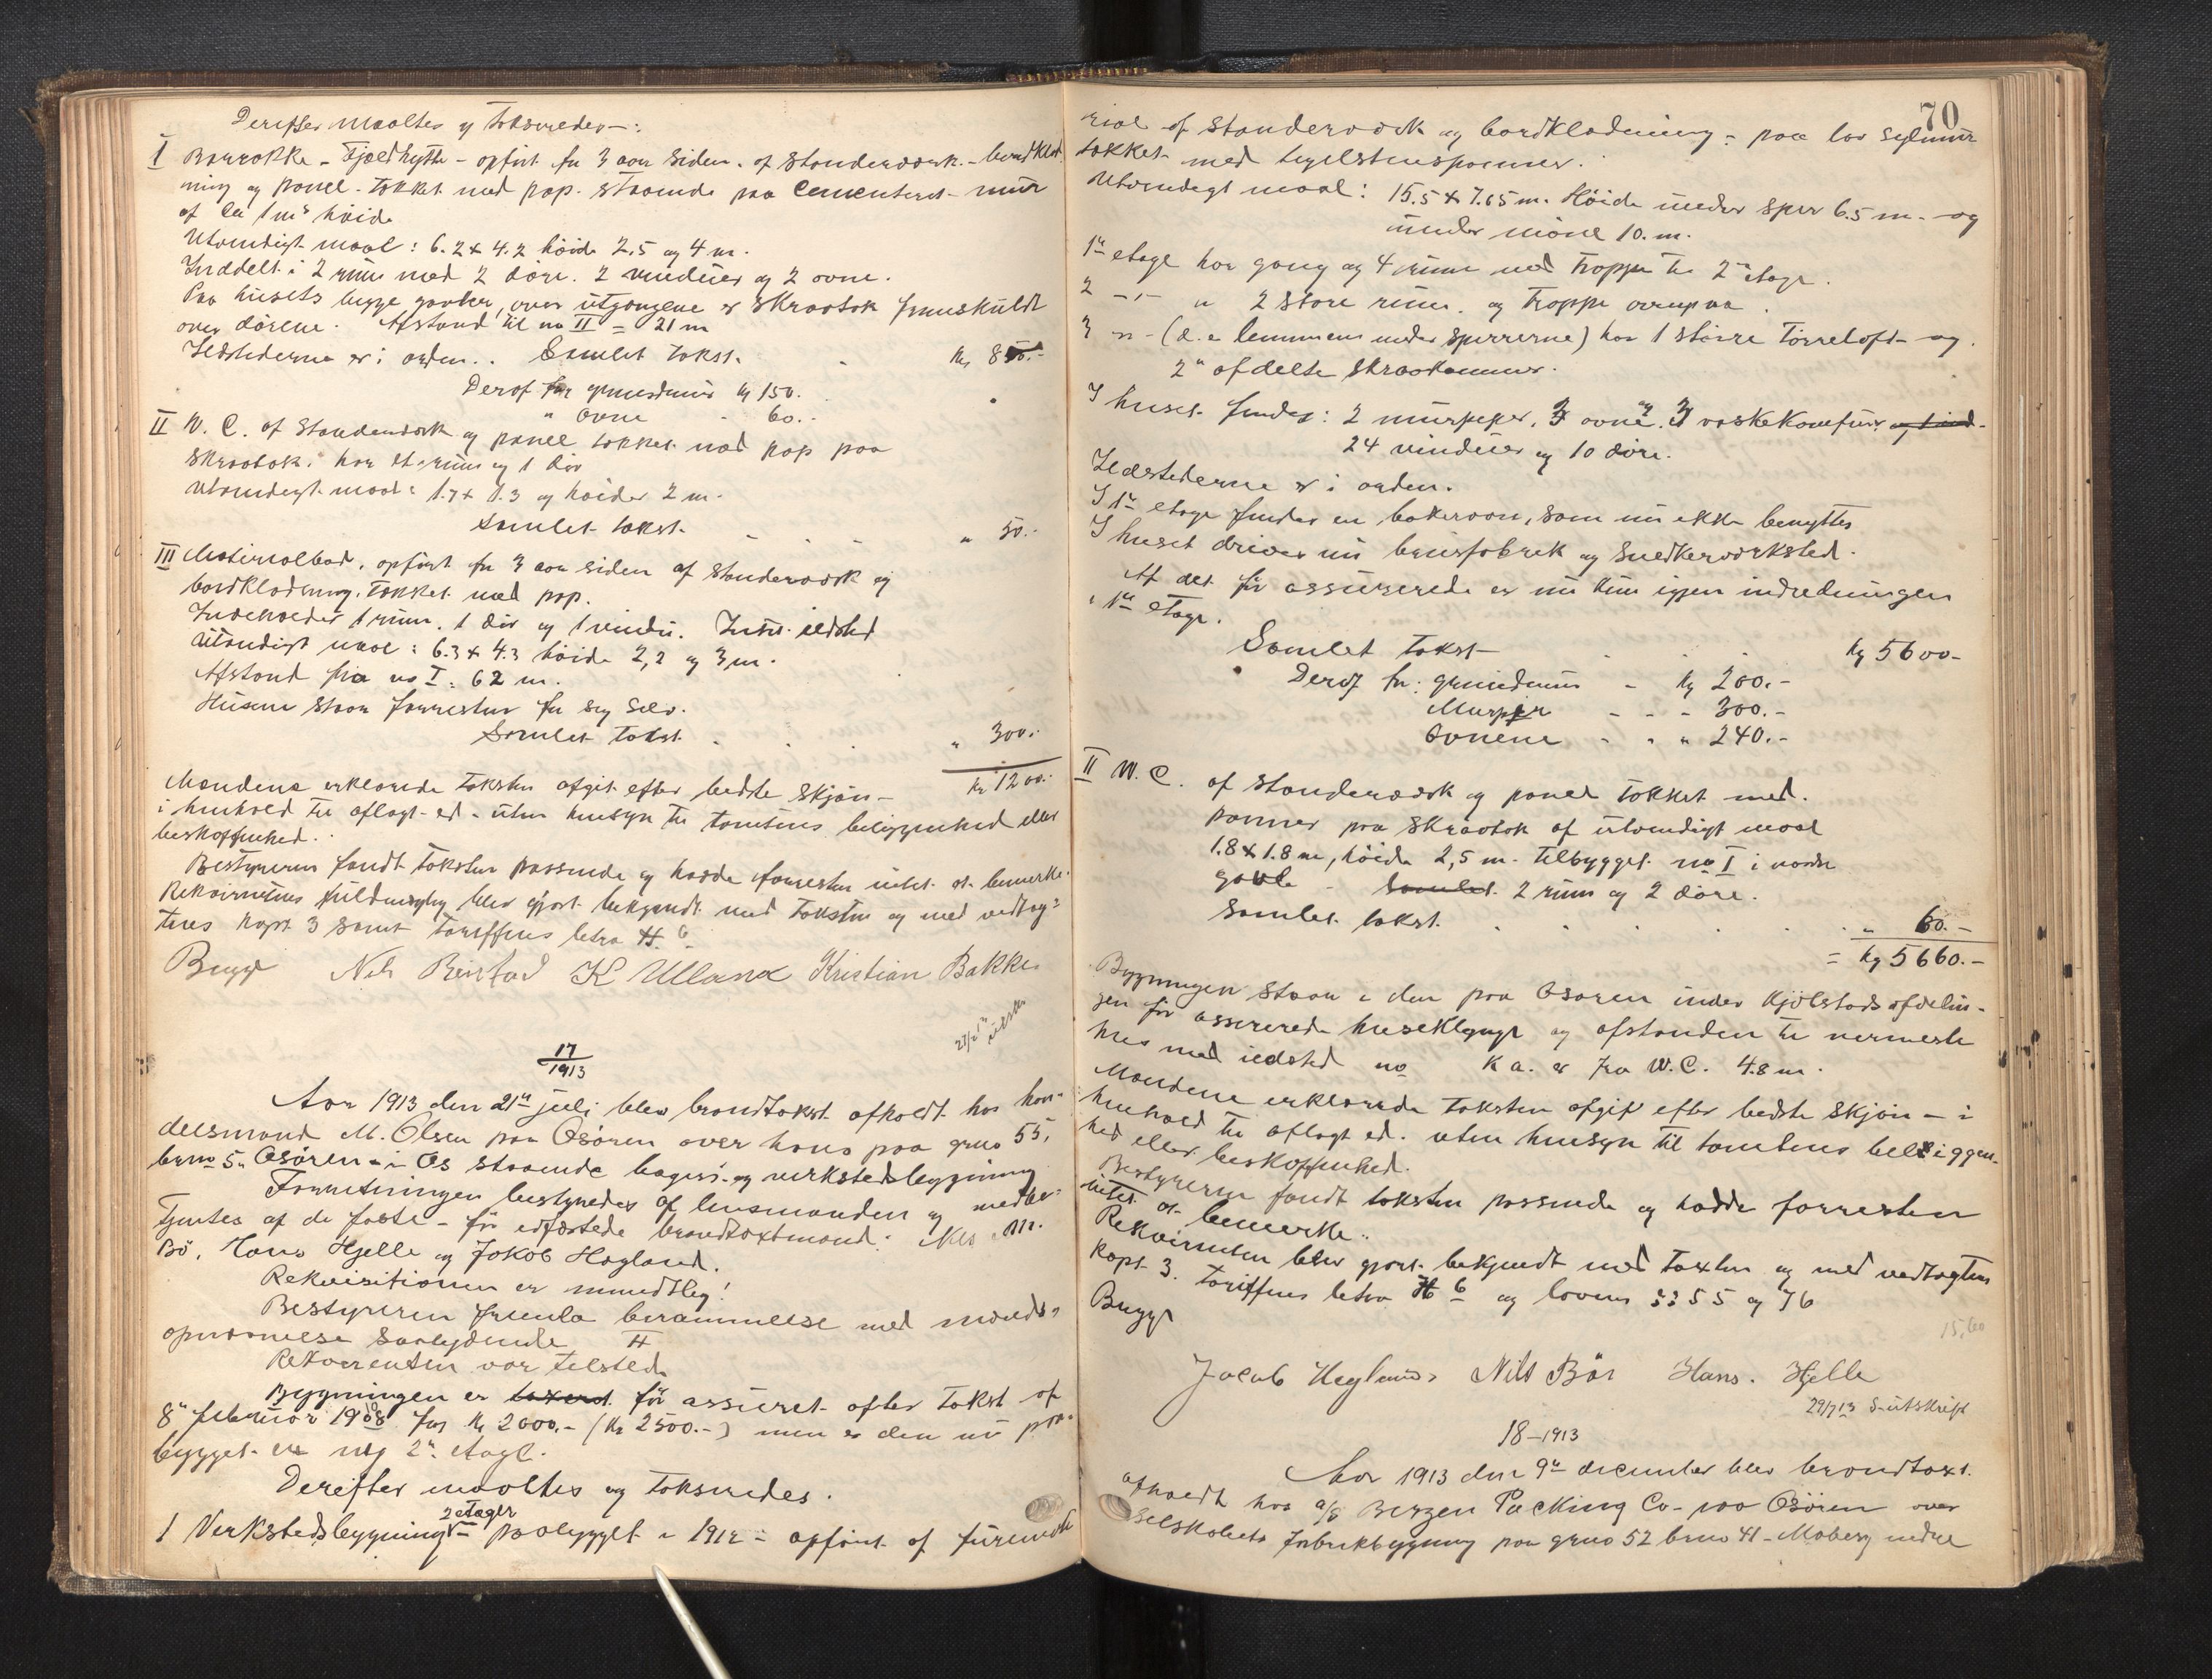 Derefter maaltes og takseredes:
I Barrakke - Fjeldhytte - opført for 3 aar siden. af standerværk - bordklæd-
ning og panel. Tækket med pap. staaende paa Cementeret mur
af ca 1 m's høide
Utvendigt maal: 6.2 x 4.2 høide 2,5 og 4 m.
Inddelt i 2 rum med 2 døre. 2 vinduer og 2 ovne.
Paa husets begge gavler, over utgangene er skraatak fremskuldt
over dørene. Afstand til no II = 21 m
Ildstederne er i orden. Samlet takst. Kr 850.-
Deraf for grundmur kr 150.
" ovne - 60.-
II W. C. af Standerværk og panel tækket med pap paa
skraatak. har et rum og 1 dør
utvendigt maal: 1.7 x 1.3 og høide 2 m.
Samlet takst. " 50.-
III Materialbod, opført for 3 aar siden af standerværk og
bordklædning. Tækket med pap.
Indeholder 1 rum. 1 dør og 1 vindu. Intet ildsted
Utvendigt maal: 6.3 x 4.3 høide 2,2 og 3 m.
Afstand fra no I: 62 m.
Husene staar forresten for sig selv.
Samlet takst " 300.-
Kr 1200.-
Mændene erklærede taksten afgit efter bedste skjøn -
i henhold til aflagt ed - uten hensyn til tomtens beliggenhed eller
beskaffenhed.
Bestyreren fandt taksten passende og hadde forresten intet at bemerke.
Rekvirentens fuldmægtig blev gjort bekjendt med taksten og med vedtæg-
tens kapt 3 samt tariffens letra H 6
Bugge Nils Reistad K Ulland Kristian Bakke
17
1913
Aar 1913 den 21de juli blev brandtakst afholdt hos han-
delsmand M. Olsen paa Osøren over hans paa grno 55,
brno 5. Osøren - i Os staaende bageri- og verkstedsbygning
Forretningen bestyredes af lensmanden og medbe-
tjentes af de faste - før edfæstede brandtaxtmænd: Nils M.
Bö, Hans Hjelle og Jakob Hagland.
Rekvisitionen er mundtlig!
Bestyreren fremla berammelse med mænds-
opnævnelse saalydende #
Rekvirenten var tilstede
Bygningen er taxeret før assuret efter takst af
8de februar 1908 for Kr 2000.- (Kr 2500.-) men er den nu paa-
bygget en ny 2den etage.
Derefter maaltes og taksredes.
1 Verkstedsbygning 2 etager - paabygget i 1912 - opført af furemate
70
riale af standerværk og bordklædning - paa lav sylmur
tækket med teglstenspanner.
Utvendigt maal: 15.5 x 7.65 m. Høide under sper 6.5 m. og
under møne 10. m.
1ste etage har gang og 4 rum med trappe til 2den etage.
2 -"- " 2 store rum, og trappe ovenpaa.
3 -"- (d. e. lemmen under sperrerne) har 1 større tørreloft og
2 afdelte skraakammer.
I huset findes: 2 murpiper, 3 ovne og 3 vaskekomfur og 1 ind-
24 vinduer og 10 døre.
Ildstederne er i orden.
I 1ste etage findes en bakerovn, som nu ikke benyttes
I huset drives nu brusfabrik og snedkerverksted.
Af det før assurerede er nu kun igjen indredningen
i 1ste etage.
Samlet takst kr 5600-
Deraf for: grundmur - kr 200.-
Murpiper - - - 300.-
Ovnene - - " 240.-
II W. C. af standerværk og panel tækket med.
panner paa skraatak af utvendigt maal
1.8 x 1.8 m, høide 2,5 m. tilbygget no I i nordre
gavl - Samlet. 2 rum og 2 døre.
Samlet takst. " 60.-
= kr 5660.-
Bygningen staar i den paa Osøren under Kjølstads afdelin-
gen før assurerede huseklynge og afstanden til nermeste
hus med ildsted no K a. er fra W.C. 4.8 m.
Mændene erklærede taksten afgit efter bedste skjøn - i
henhold til aflagt ed. uten hensyn til tomtens beliggen-
hed eller beskaffenhed.
Bestyreren fandt taksten passende og hadde forresten
intet at bemerke.
Rekvirenten blev gjort bekjendt med taxten og med vedtægtens
kapt 3. tariffens letra H 6 og lovens §§ 55 og 76
Bugge
15,60
Jacob Hagland, Nils Bör Hans. Hjelle
29/7 13 S. utskrift
18-1913
Aar 1913 den 9de december blev brandtaxt.
afholdt hos a/s Bergen Packing Co - paa Osøren over
selskabets fabrikbygning paa grno 52 brno 41 - Moberg nedre